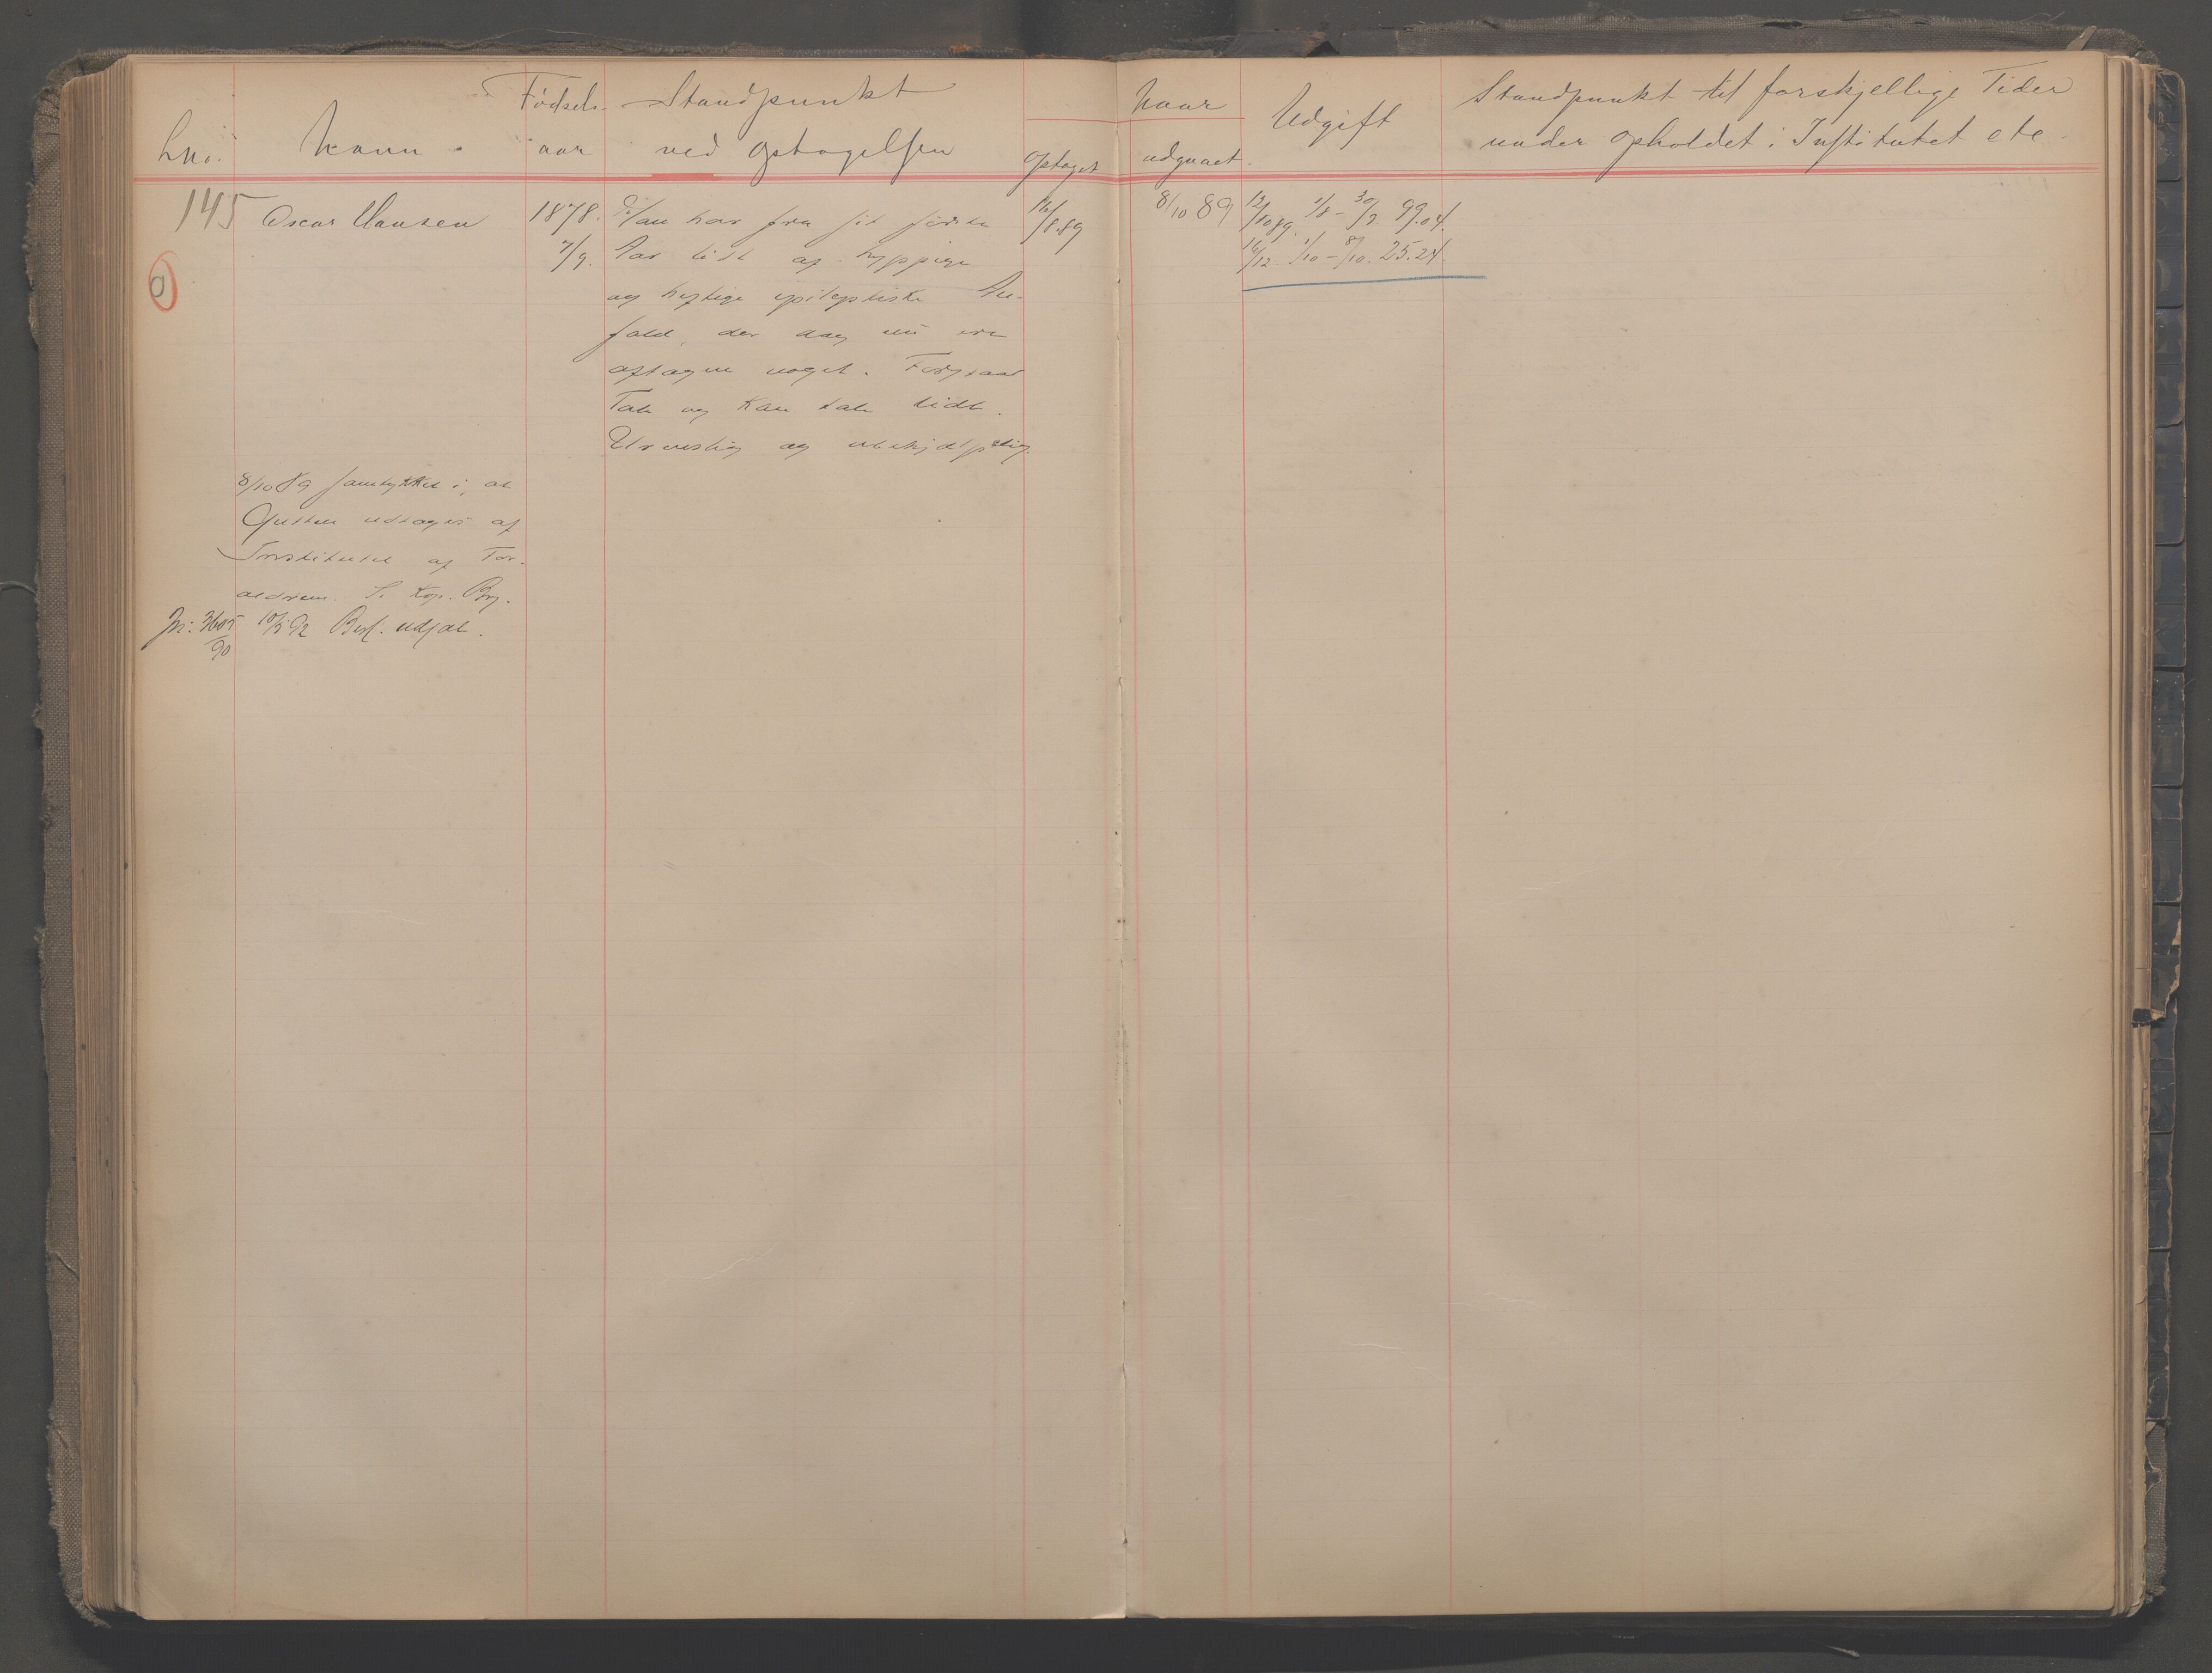 Lno.
Navn.
Fødsels-
aar
Standpunkt
ved Optagelsen
Optaget
Naar
udgaaet.
Udgift
Standpunkt til forskjellige Tider
under Opholdet i Institutet etc.
145
Oscar Hansen
1878.
7/9.
Han har fra sit første
Aar lidt af hyppige
og heftige epileptiske An-
fald, der dog nu ere
aftagne noget. Forstaar
Tale og kan tale lidt.
Urenslig og ubehjælpelig.
16/8.89
8/10 89
12/10 89. 1/8 - 30/9. 99.04.
16/12. 1/10 - 8/10. 25.24.
0
8/10 89 samtykket i, at
Gutten udtages af
Institutet af For-
ældrene. S. Kop. Bog.
Jr: 3605/90
10/5 92 Besl. udfæt.